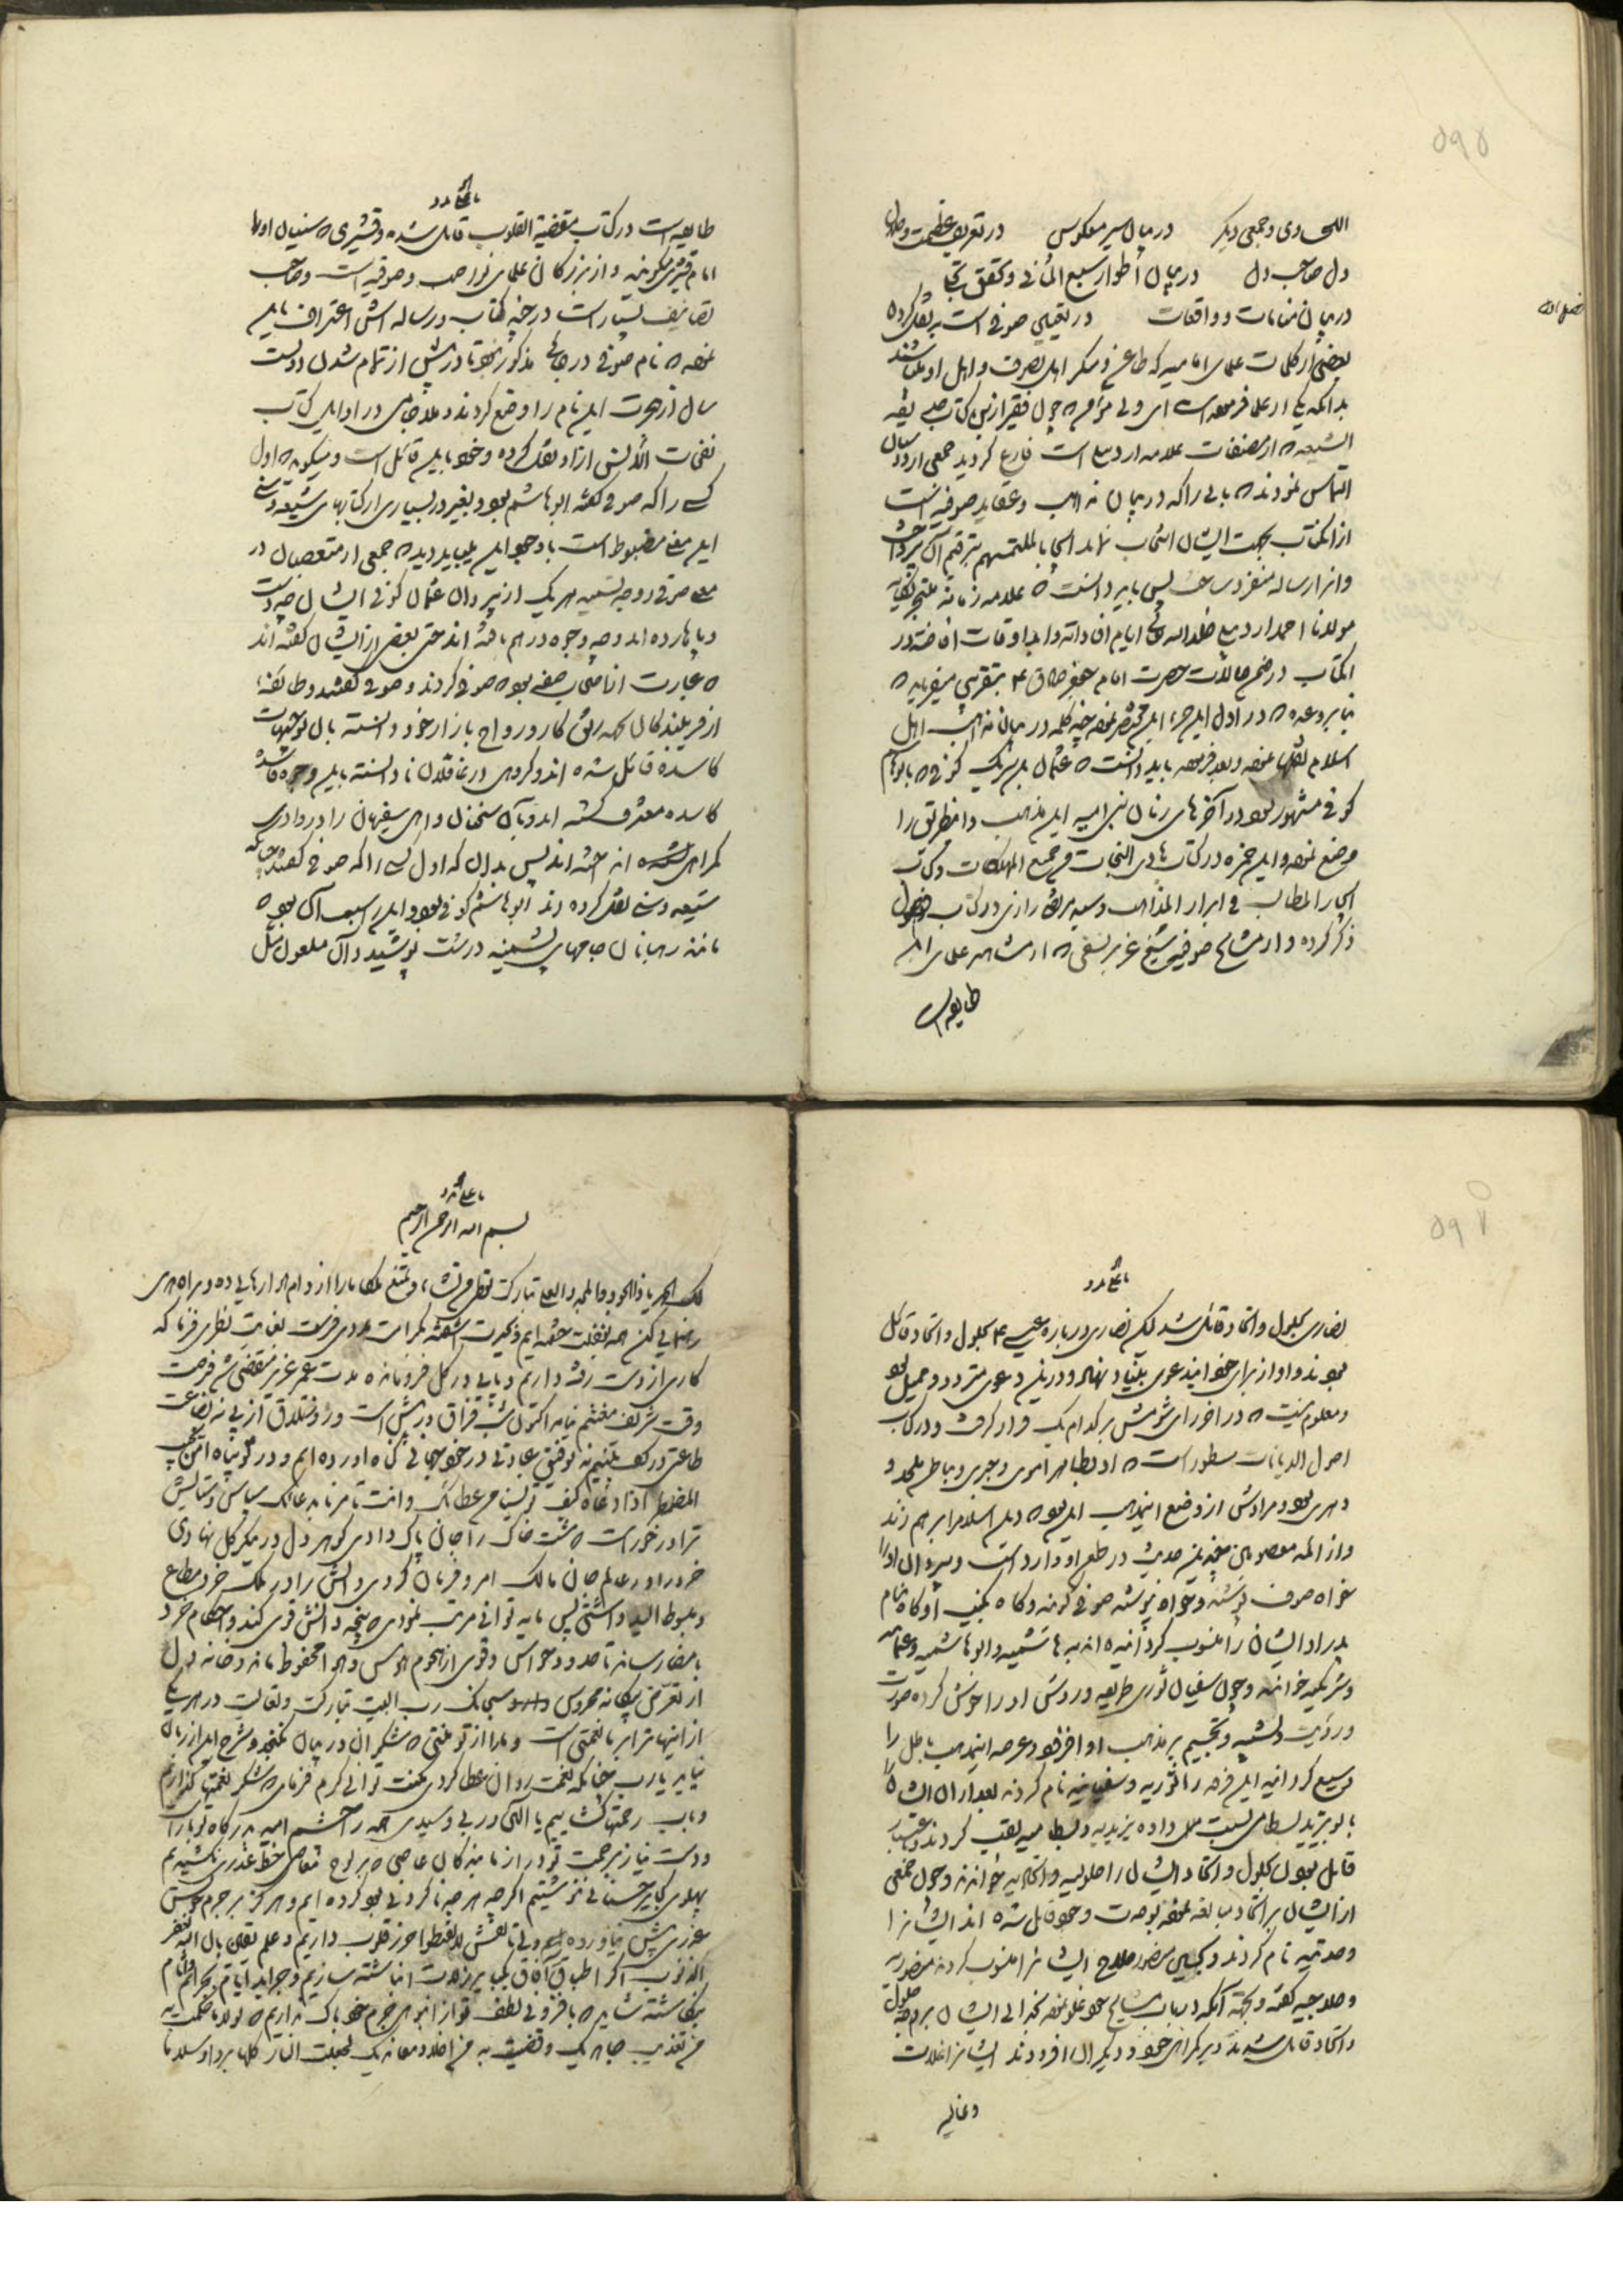 ۵۹۵
اللحاوی و جمعی دیگر در بیان سیر معکوس در تعریف عظمت و صفای
دل صاحب دل در بیان اطوار سبع المثانی و تحقق
در بیان منامات و واقعات در تعیین صوفی است بر نقل کرده
بعضی از کلمات علمای امامیه که طاعن و منکر اهل تصرف و اهل او باشند
بدانکه یکی از علما فرموده است ای ولی مؤمن ه چون فقیر از کتاب حدیقه
الشیعه ه از مصنفات علامه اردبیلی است فارغ کردید جمعی از دوستان
التماس نمودند ه بابی را که در بیان مذاهب و عقاید صوفیه است
از انکتاب بجهت ایشان انتخاب نماید ایجابا لملتمسهم بترقیم آن پرداخت
و انرا رساله منفرد ساخت پس باید دانست ه علامه زمانه
مولانا احمد اردبیلی خلد الله ایام افاداته و ابد اوقات افاضته در
انکتاب در ضمن حالات حضرت امام جعفر صادق ع بتقریبی میفرماید ه
بنا بر وعده ه در اول این جزء این مختصر نموده چند کلمه در بیان مذاهب اهل
اسلام نقلها نموده و بعد فرموده باید دانست ه عثمان بن شریک کوفی ه بابو هاشم
کوفی مشهور بود در آخرهای زمان بنی امیه این مذهب و انطریق را
وضع نموده و ابن حمزه در کتاب هادی النجات من جمیع المهلکات و کتاب
ایجاز المطالب فی ابراز المذاهب و سید مرتضی رازی در کتاب فصول
ذکر کرده و از مشایخ صوفیه شیخ عزیز نسفی ه از مشاهیر علمای این
طایفه است
یا علی مدد
طایفه است در کتاب مقصد القلوب قائل شده و قشیری ه سنیان او را
امام قشیری میگویند و از بزرکان علمای نواصب و صوفیه است و صاحب
تصانیف بسیار است در چند کتاب و رساله اش اعتراف باین
نموده ه نام صوفی در جائی مذکور نبود تا در پیش از تمام شدن دویست
سال از هجرت این نام را وضع کردند و ملا جامی در اوایل کتاب
نفحات الانس از او نقل کرده و خود باین قائل است و میکوید ه اول
کسی را که صوفی گفتند ابو هاشم بود و بغیر در بسیاری از کتابهای شیعه و سنی
این معنی مضبوط است با وجود این بباید دید ه جمعی از متعصبان در
معنی صوفی و وجه تسمیه هر یک از پیروان عثمان کوفی ایشان چه دست
و پاها زده اند و چه وجوه در هم بافته اند حتی بعضی از ایشان گفته اند
ه عبارت از اصحاب صفه بود ه صوفی کردند و صوفی گفتند و طایفه
از فریبندکان کهنه رونق کار و رواج بازار خود دانسته بان توجیهات
کاسده قائل شده اند و کروهی از غافلان نادانسته باین وجوه فاسده
کاسده معترف گشته اند و بآن سخنان واهی سفیهان را در وادی
کمراهی انداخته اند پس بدان که اول کسی را که صوفی گفتند چنانکه
شیعه و سنی نقل کرده اند ابو هاشم کوفی بود و این بسبب آن بود ه
مانند رهبانان جامهای پشمینه درشت پوشیده و آن ملعون مثل
۵۹۷
یا علی مدد
نصاری بحلول و اتحاد قائل شد لیکن نصاری درباره عیسی ع بحلول و اتحاد قائل
بودند و او از برای خود این دعوی بنیاد نهاد و در این دعوی متردد و حیران بود
و معلوم نیست ه در آخر رای شومش بر کدام یک قرار گرفت و در کتاب
اصول الدیانات مسطور است ه او بظاهر اموی و جبری و بباطن ملحد و
دهری بود و مرادش از وضع این مذهب این بود ه دین اسلام را بر هم زند
و از ائمه معصومین چندین حدیث در طعن او وارد است و پیروان او را
خواه صوف پوشند و خواه نپوشند صوفی گویند و کاه بکنیه او کاه بنام
پدر او ایشان را منسوب کردانیده اند به هاشمیه و ابو هاشمیه و عثمانیه
و شریکیه خوانند و چون سفیان ثوری طریقه و روش او را خوش کرده صورت
و رؤیت و تشبیه و تجسیم بر مذهب او افزود و عرصه این مذهب باطل را
توسیع کردانید این فرقه را ثوریه و سفیانیه نام کردند بعد از ان ایشان را
با بو یزید بسطامی نسبت داده یزیدیه و بسطامیه لقب کردند و باعتبار
قائل بودن بحلول و اتحاد ایشان را حلولیه و اتحادیه خوانند و چون جمعی
از ایشان بر اتحاد مبالغه نموده بوحدت وجود قائل شده اند ایشانرا
وحدتیه نام کردند و بحسین منصور حلاج ایشانرا منسوب کردند منصوریه
و حلاجیه گفتند و بجهة آنکه در باب مشایخ خود غلو نموده بخدائی ایشان بر وجه حلول
و اتحاد قائل شدند و بر کمراهی خود و دیکران افزودند ایشانرا غلات
و غالیه
یا علی مدد
بسم الله الرحمن الرحیم
لک الحمد یا ذا الجود و المجد و العلی تبارکت تعطی من تشاء و تمنع ملکا ما را از دام هوا رهایی ده و براه هدی
رهنمایی کن همه بغفلت خفته ایم و بحیرت آشفته نظری فرما که
کاری از دست رفته داریم و پایی در کل فرومانده مدت عمر عزیز منقضی شد فرصت
وقت شریف مغتنم نیامد اکنون شب فراق در پیش است و روز تلاق از پی نه بضاعت
طاعتی در کف نه توفیق عبادتی در خود بجای کناه آورده ایم و در تو پناه امن یجیب
المضطر اذا دعاه کیف ترانا من عطائک و انت تأمرنا بدعائک سپاس و ستایش
ترا در خور است ه مشت خاک را جان پاک دادی کوهر دل در پیکر کل نهادی
خرد را در عالم جان مالک امر و فرمان کردی و دانش را در ملک خرد مطاع
و مبسوط الید داشتی پس پایه توانی مرتب نمودی ه پنجه دانش قوی کند و احکام خرد
بامضا رساند تا حدود حواس و قوی از هجوم هوس و هوا محفوظ ماند و خانه دل
از تعرض بیگانه محروس سبحانک رب البیت تبارکت و تعالیت در هر یک
از اینها ترا بر ما نعمتی است و ما را از تو منتی ه شکر آن در بیان نکنجد و شرح این از زبان
نیاید یا رب چنانکه نعمت روان عطا کردی مکنت توانی کرم فرمای ه شکر نعمتها گذاریم
و باب رحمتها گشاییم یا الهی و ربی و سیدی همه را چشم امید بدرگاه تو باز است
و دست نیاز برحمت تو دراز نامه عاصی ه بر لوح معاصی خط عذری نکشیدیم
پهلوی کبایر حسناتی ننوشتیم اگر چه هر چه ناکردنی بود کرده ایم و هرگز بر جرم خویش
عذری پیش نیاورده ایم ولی نقش لا تقنطوا حرز قلوب داریم و علم یقین بان الله یغفر
الذنوب اگر اطباق آفاق انباشته سازیم و جراید ایام بجرایم و آثام
نگاشته شاید ه با فزونی لطف تو از انبوهی جرم خود باک نداریم ه لولا ما حکمت به
من تعذیب جاحدیک و قضیت به من اخلاد معاندیک لجعلت النار کلها بردا و سلاما